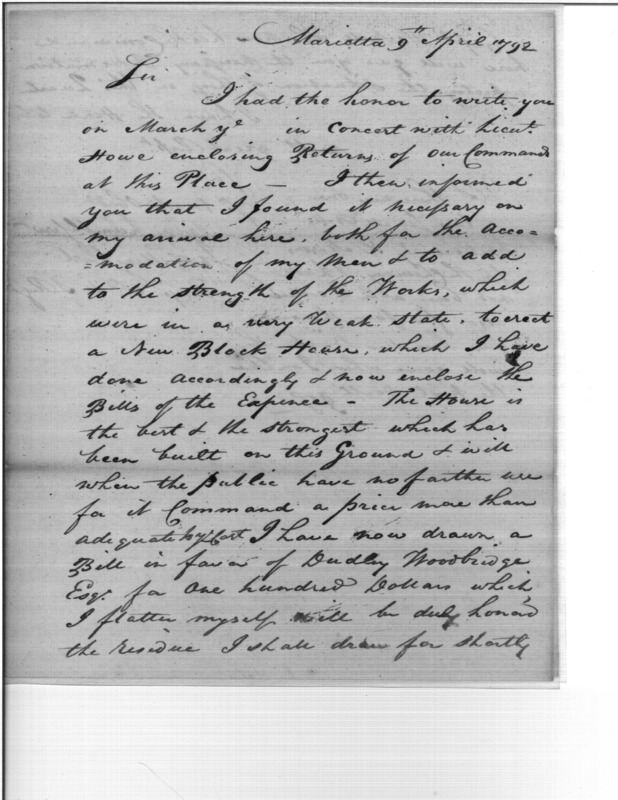 Marietta 9th April 1792
Sir
I had the honor to write you
on March ye in Concert with Lieut.
Howe enclosing Returns of our Command
at this Place — I then informed
you that I found it necessary on
my arival here, both for the Acco=
=modation of my Men & to add
to the strength of the Works, which
were in a very Weak state, to erect
a New Block House, which I have
done accordingly & now enclose the
Bills of the Expence — The House is
the best & the strongest which has
been built on this Ground & will
when the public have no farther use
for it Command a price more than
adequate to its Cost I have now drawn a
Bill in favor of Dudley Woodbridge
Esqr. for One hundred Dollars which
I flatter myself will be duly honor'd
the residue I shall draw for shortly